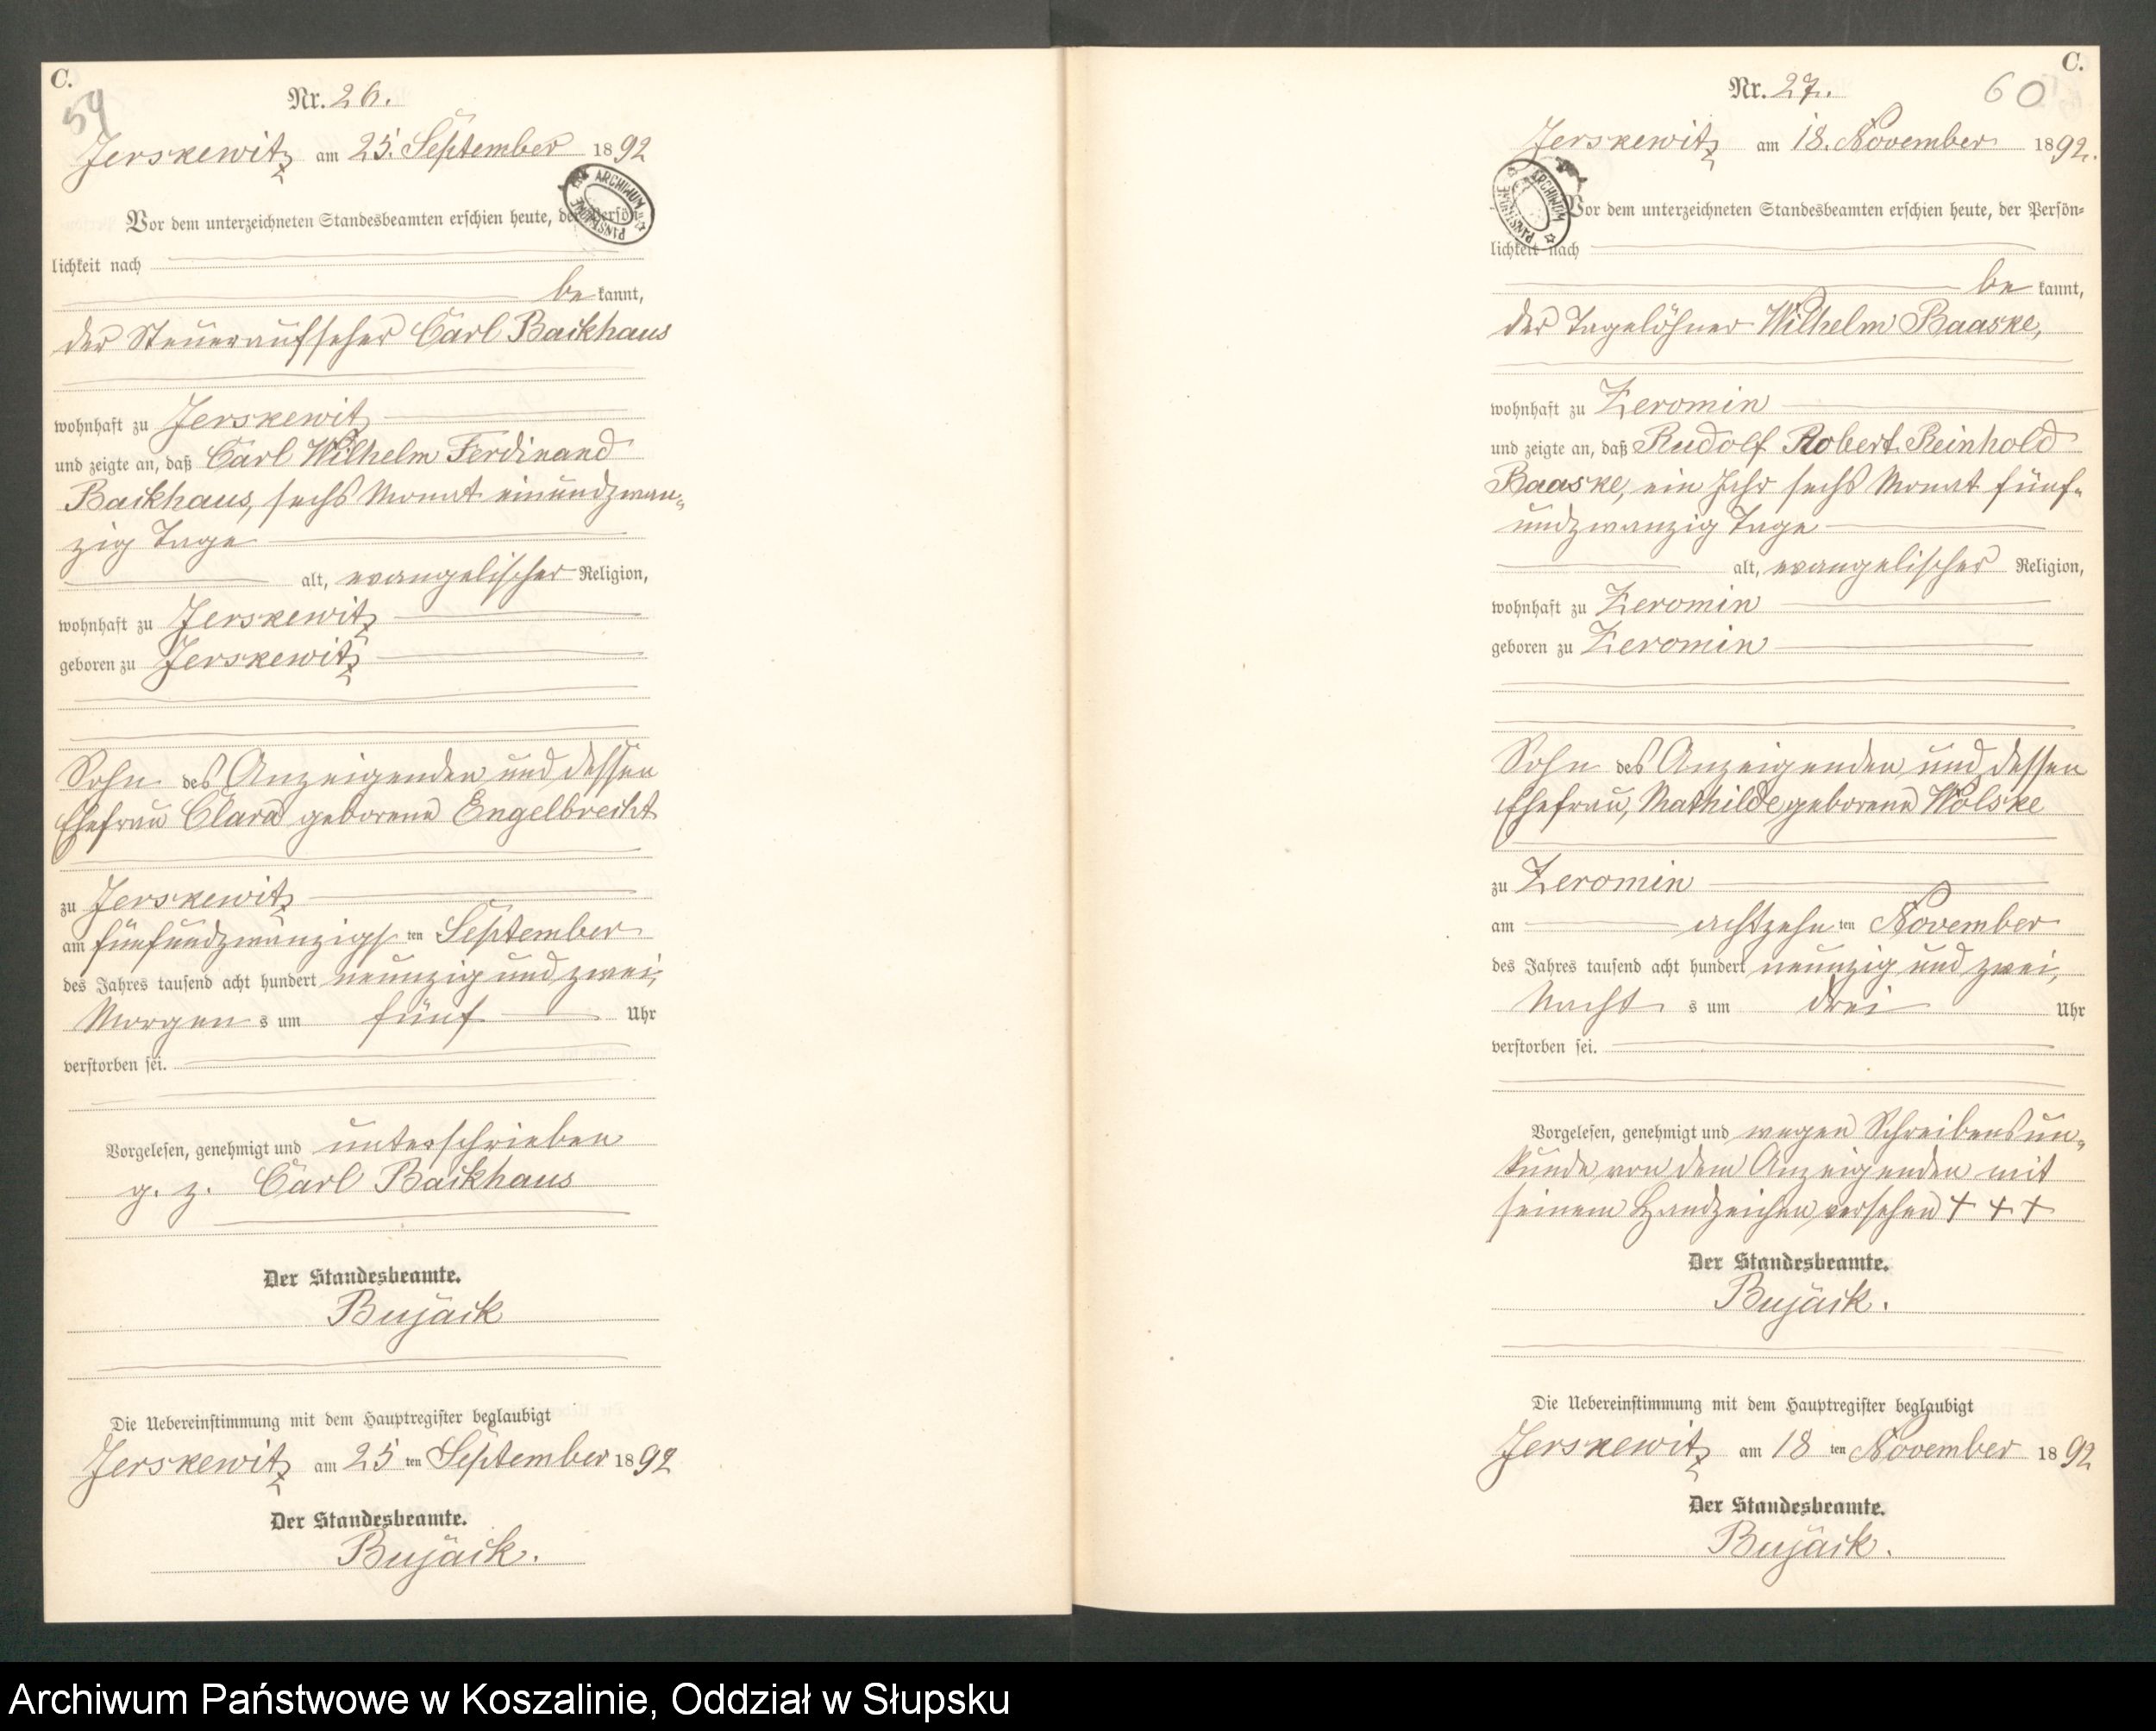 C.
59
Nr. 26.
Jerskewitz am 25. September 1892
ARCHIWUM PAŃSTWOWE
Vor dem unterzeichneten Standesbeamten erschien heute, der Persön-
lichkeit nach
be kannt,
der Steueraufseher Carl Backhaus
wohnhaft zu Jerskewitz
und zeigte an, daß Carl Wilhelm Ferdinand
Backhaus, sechs Monat einundzwan-
zig Tage
alt, evangelischer Religion,
wohnhaft zu Jerskewitz
geboren zu Jerskewitz
Sohn des Anzeigenden und dessen
Ehefrau Clara geborene Engelbrecht
zu Jerskewitz
am fünfundzwanzigs ten September
des Jahres tausend acht hundert neunzig und zwei,
Morgen s um fünf Uhr
verstorben sei.
Vorgelesen, genehmigt und unterschrieben
g. z. Carl Backhaus
Der Standesbeamte.
Bujack
Die Uebereinstimmung mit dem Hauptregister beglaubigt
Jerskewitz am 25 ten September 1892
Der Standesbeamte.
Bujack.
C.
60
Nr. 27.
Jerskewitz am 18. November 1892.
ARCHIWUM PAŃSTWOWE
Vor dem unterzeichneten Standesbeamten erschien heute, der Persön-
lichkeit nach
be kannt,
der Tagelöhner Wilhelm Baaske,
wohnhaft zu Zeromin
und zeigte an, daß Rudolf Robert Reinhold
Baaske, ein Jahr sechs Monat fünf-
undzwanzig Tage
alt, evangelischer Religion,
wohnhaft zu Zeromin
geboren zu Zeromin
Sohn des Anzeigenden und dessen
Ehefrau, Mathilde geborene Wolske
zu Zeromin
am achtzehn ten November
des Jahres tausend acht hundert neunzig und zwei,
Nacht s um drei Uhr
verstorben sei.
Vorgelesen, genehmigt und wegen Schreibensun-
kunde von dem Anzeigenden mit
seinem Handzeichen versehen + + +
Der Standesbeamte.
Bujack.
Die Uebereinstimmung mit dem Hauptregister beglaubigt
Jerskewitz am 18 ten November 1892
Der Standesbeamte.
Bujack.
Archiwum Państwowe w Koszalinie, Oddział w Słupsku